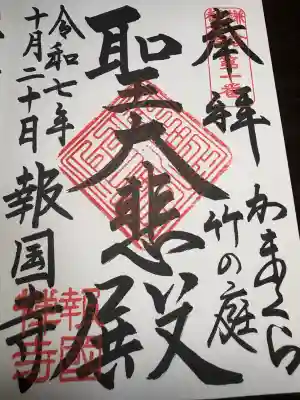 奉拝
かまくら
竹の庭
聖大悲殿
令和七年
十月二十日
報国寺
報國
禅寺